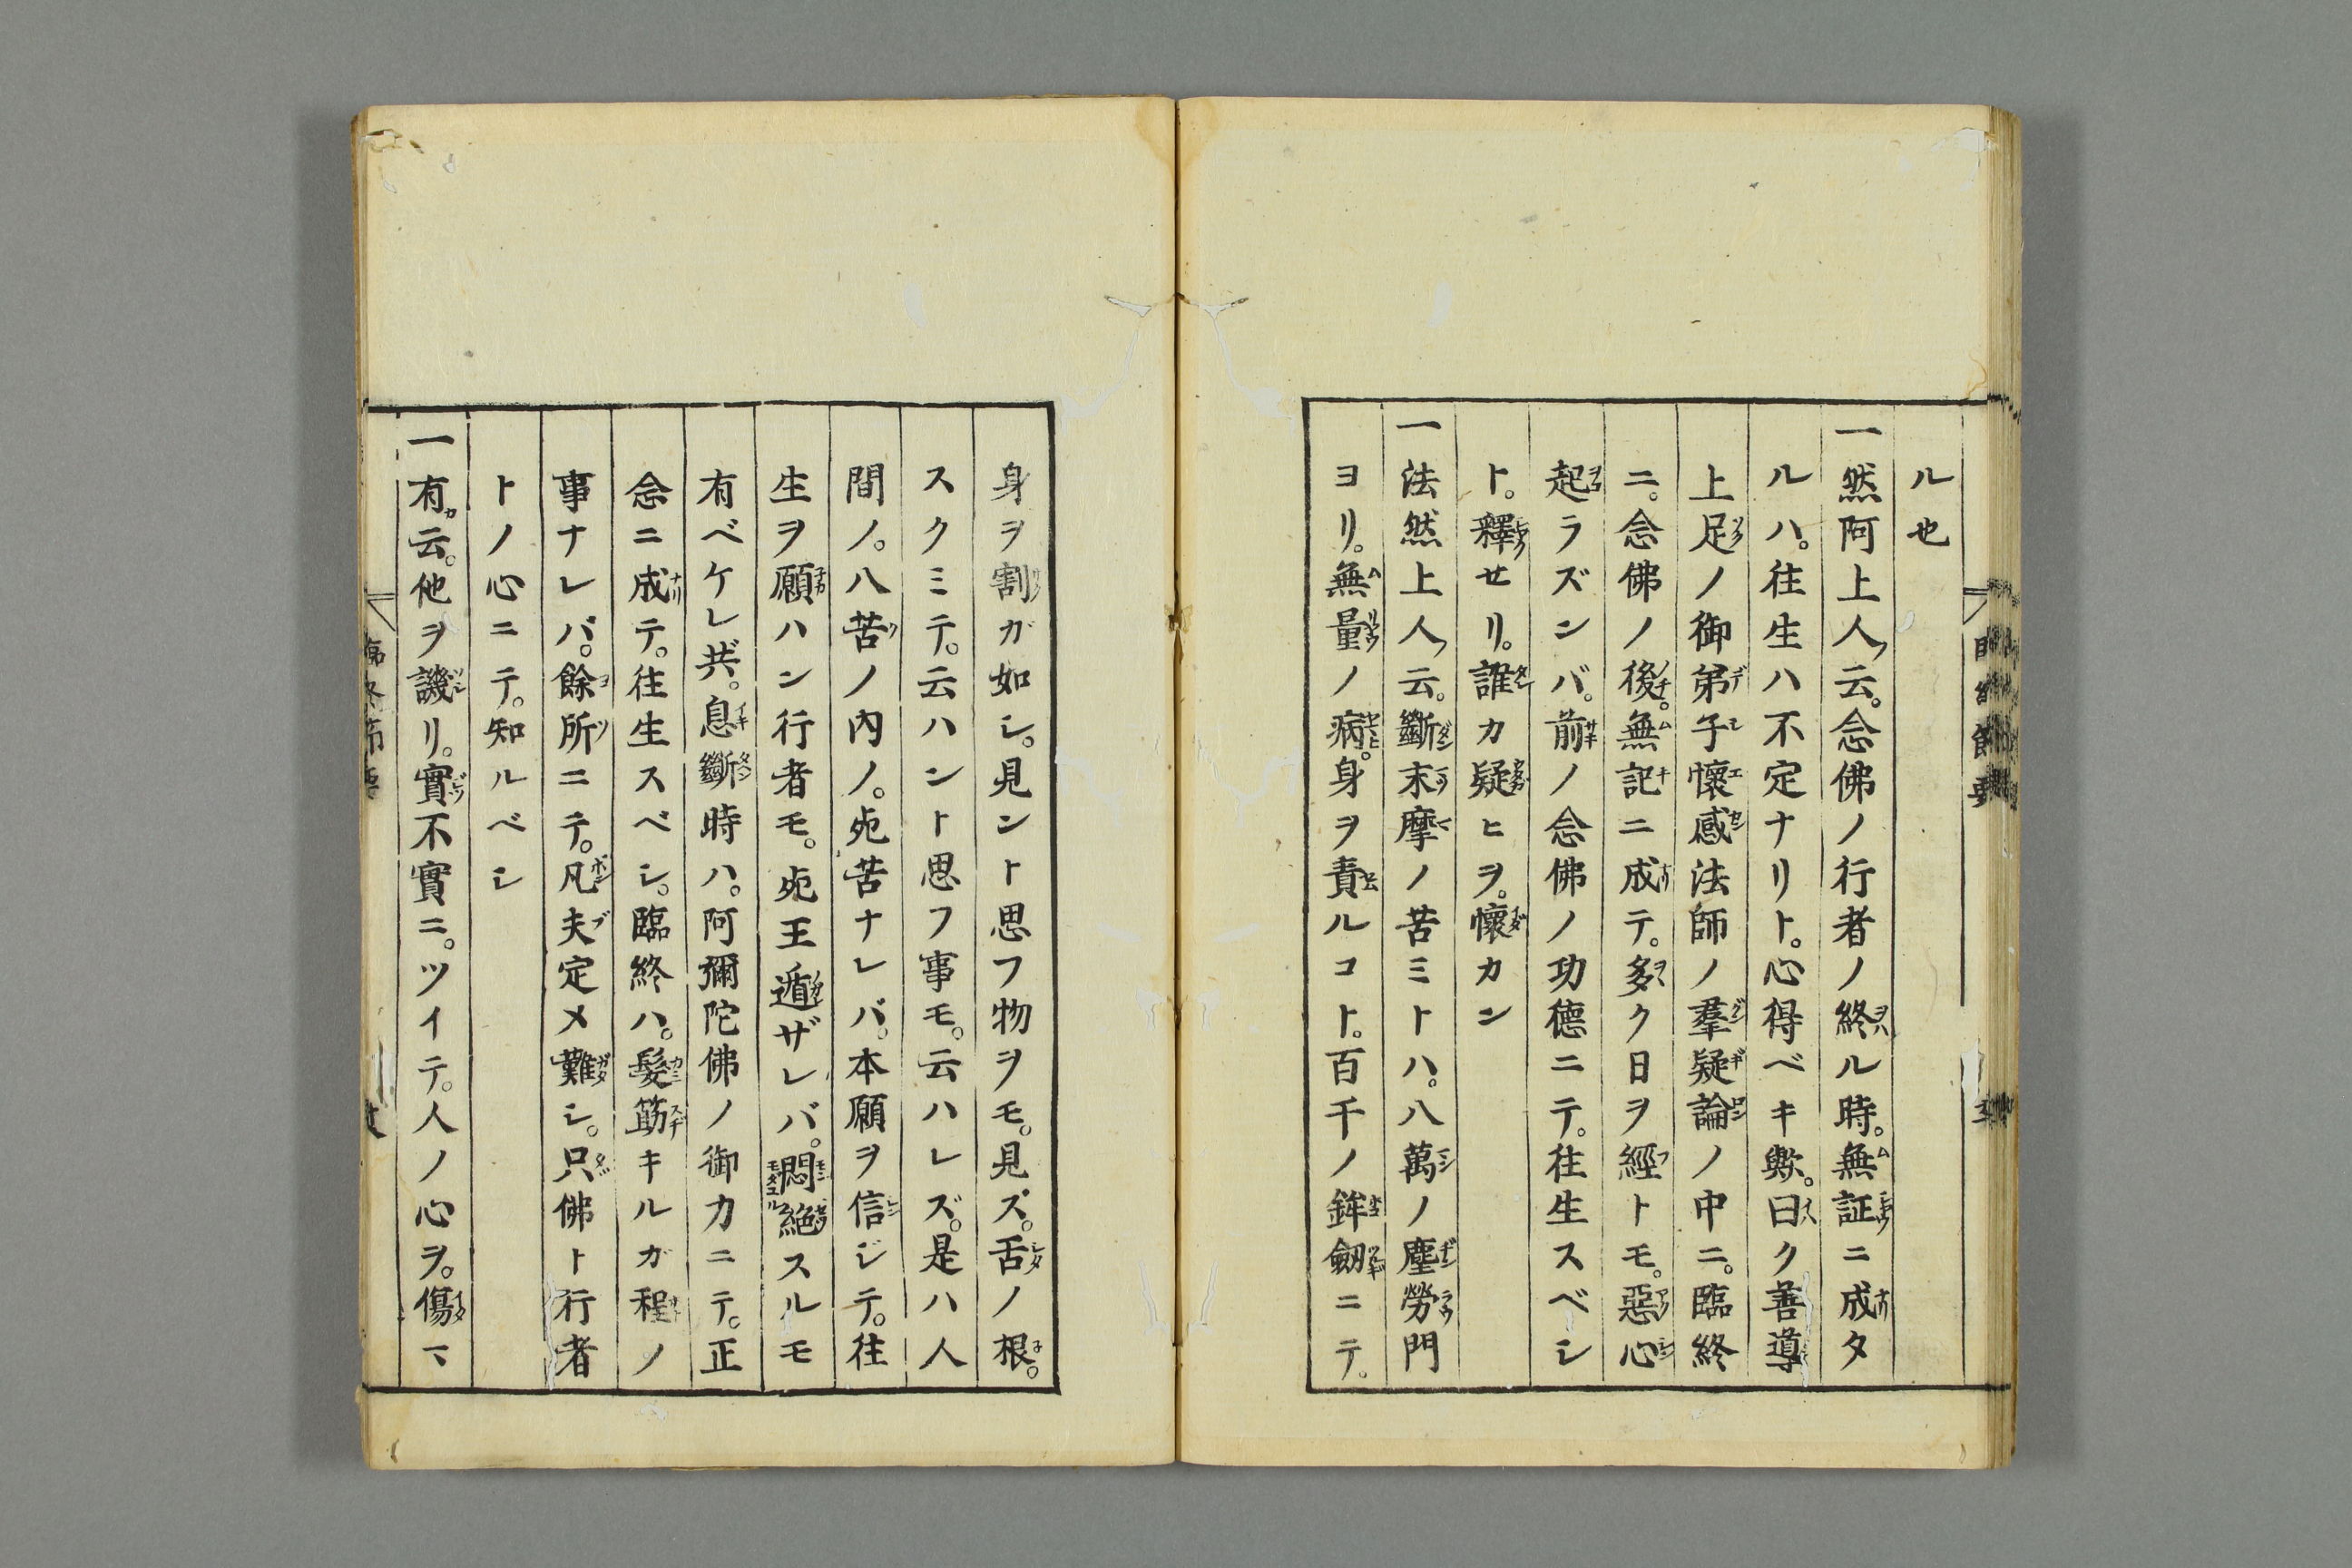 ル也
一然阿上人ノ云。念佛ノ行者ノ終ル時。無証ニ成タ
ルハ。往生ハ不定ナリト。心得ベキ歟。曰ク善導
上足ノ御弟子懷感法師ノ羣疑論ノ中ニ。臨終
ニ。念佛ノ後。無記ニ成テ。多ク日ヲ經トモ。惡心
起ラズンバ。前ノ念佛ノ功德ニテ。往生スベシ
ト。釋セリ。誰カ疑ヒヲ。懷カン
一法然上人ノ云。斷末摩ノ苦ミトハ。八萬ノ塵勞門
ヨリ。無量ノ病。身ヲ責ルコト。百千ノ鉾劔ニテ。
身ヲ割ガ如シ。見ント思フ物ヲモ。見ズ。舌ノ根。
スクミテ。云ハント思フ事モ。云ハレズ。是ハ人
間ノ。八苦ノ內ノ。死苦ナレバ。本願ヲ信ジテ。往
生ヲ願ハン行者モ。死王遁ザレバ。悶絕スルモ
有ベケレ共。息斷時ハ。阿彌陀佛ノ御力ニテ。正
念ニ成テ。往生スベシ。臨終ハ。髮筋キルガ程ノ
事ナレバ。餘所ニテ。凡夫定メ難シ。只佛ト行者
トノ心ニテ。知ルベシ
一有カ云。他ヲ譏リ。實不實ニ。ツイテ。人ノ心ヲ。傷マ
臨終節要